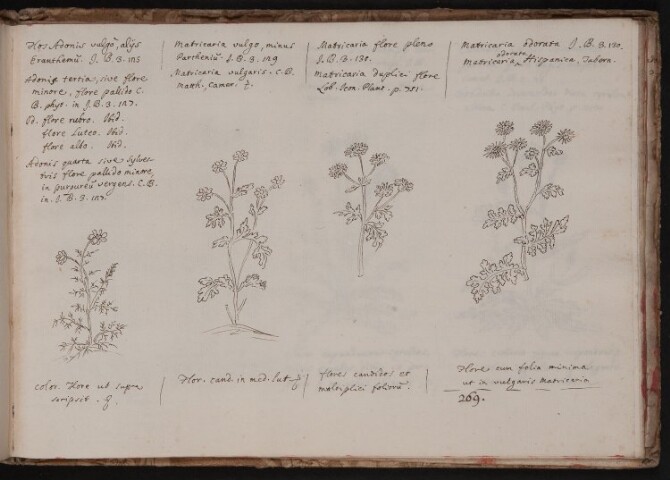 Flos Adonis vulgo, alijs
Eranthemū. J. B. 3. 125
Adonis tertia, sive flore
minore, flore pallido C.
B. phyt. in J. B. 3. 127.
Id. flore rubro. Ibid.
flore Luteo. Ibid.
flore albo. Ibid.
Adonis quarta sive sylves-
tris flore pallido minore,
in purpureū vergens. C. B.
in. J. B. 3. 127.
color. Flore ut supra
scripsit.
Matricaria vulgo, minus
Parthenium. J. B. 3. 129
Matricaria vulgaris. C. B.
Matth. Camer.
Flor. cand. in med. lut.
Matricaria flore pleno
J. B. 3. 130.
Matricaria duplici flore
Lob. Icon. Plant. p. 751.
flores candidos et
multiplici foliorū.
Matricaria odorata J. B. 3. 130.
odorata
Matricaria Hispanica, Tabern.
Flore cum folia minima
ut in vulgaris matricaria
269.